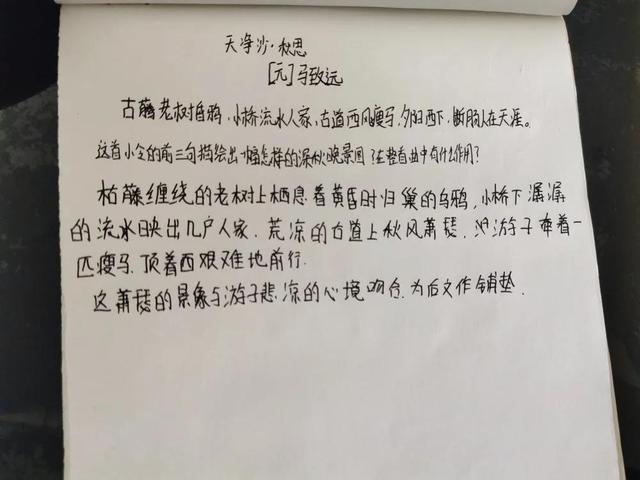 天净沙·秋思
[元]马致远
古藤老树昏鸦,小桥流水人家,古道西风瘦马,夕阳西下,断肠人在天涯。
这首小令的前三句描绘出一幅怎样的深秋晚景图?在整首曲中有什么作用?
枯藤缠绕的老树上栖息着黄昏时归巢的乌鸦,小桥下潺潺
的流水映出几户人家.荒凉的古道上秋风萧瑟,游子牵着一
匹瘦马.顶着西艰难地前行.
这萧瑟的景象与游子悲凉的心境吻合.为后文作铺垫.